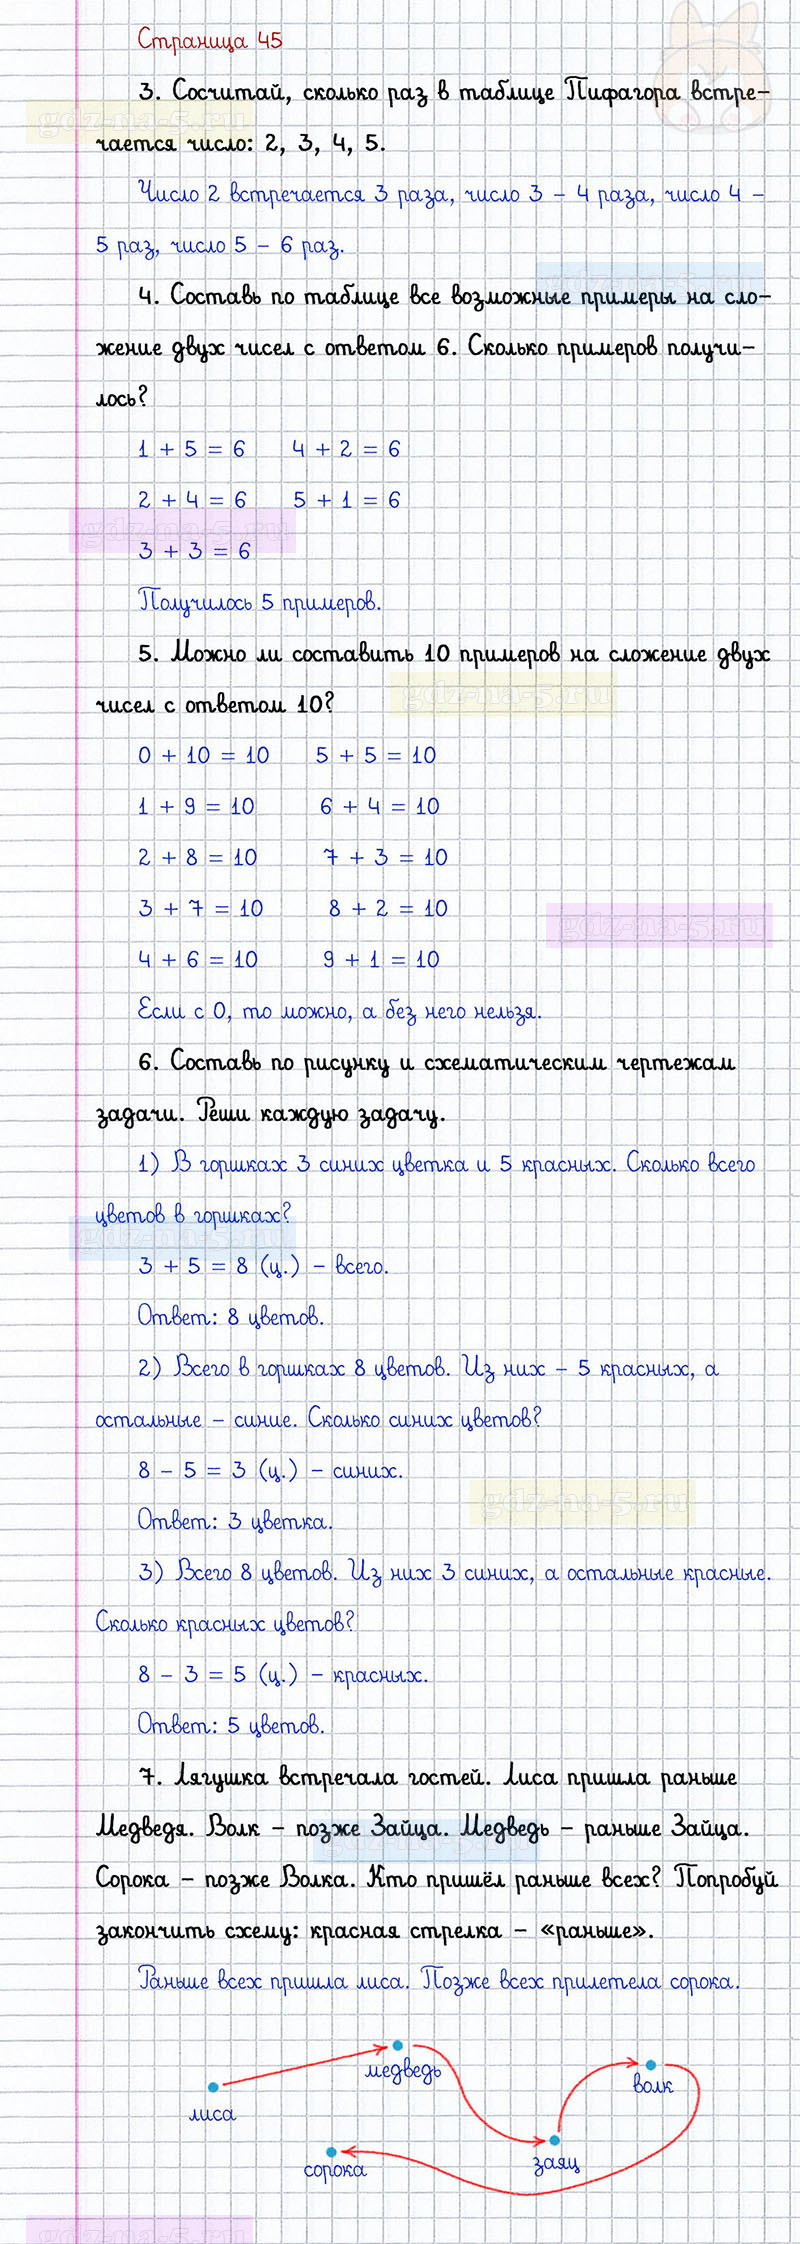 Страница 45
3. Сосчитай, сколько раз в таблице Пифагора встре-
чается число: 2, 3, 4, 5.
Число 2 встречается 3 раза, число 3 – 4 раза, число 4 –
5 раз, число 5 – 6 раз.
4. Составь по таблице все возможные примеры на сло-
жение двух чисел с ответом 6. Сколько примеров получи-
лось?
1 + 5 = 6 4 + 2 = 6
2 + 4 = 6 5 + 1 = 6
3 + 3 = 6
Получилось 5 примеров.
5. Можно ли составить 10 примеров на сложение двух
чисел с ответом 10?
0 + 10 = 10 5 + 5 = 10
1 + 9 = 10 6 + 4 = 10
2 + 8 = 10 7 + 3 = 10
3 + 7 = 10 8 + 2 = 10
4 + 6 = 10 9 + 1 = 10
Если с 0, то можно, а без него нельзя.
6. Составь по рисунку и схематическим чертежам
задачи. Реши каждую задачу.
1) В горшках 3 синих цветка и 5 красных. Сколько всего
цветов в горшках?
3 + 5 = 8 (ц.) – всего.
Ответ: 8 цветов.
2) Всего в горшках 8 цветов. Из них – 5 красных, а
остальные – синие. Сколько синих цветов?
8 – 5 = 3 (ц.) – синих.
Ответ: 3 цветка.
3) Всего 8 цветов. Из них 3 синих, а остальные красные.
Сколько красных цветов?
8 – 3 = 5 (ц.) – красных.
Ответ: 5 цветов.
7. Лягушка встречала гостей. Лиса пришла раньше
Медведя. Волк – позже Зайца. Медведь – раньше Зайца.
Сорока – позже Волка. Кто пришёл раньше всех? Попробуй
закончить схему: красная стрелка – «раньше».
Раньше всех пришла лиса. Позже всех прилетела сорока.
медведь
волк
лиса
заяц
сорока
gdz-na-5.ru
gdz-na-5.ru
gdz-na-5.ru
gdz-na-5.ru
gdz-na-5.ru
gdz-na-5.ru
gdz-na-5.ru
gdz-na-5.ru
gdz-na-5.ru